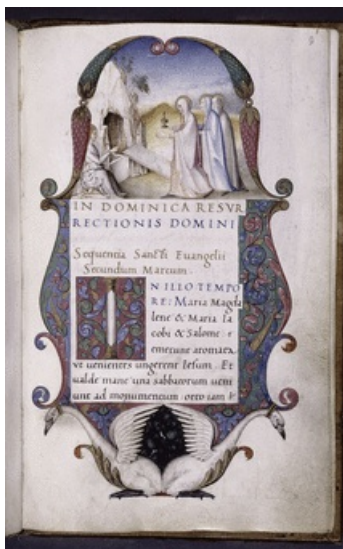 IN DOMINICA RESVR
RECTIONIS DOMINI
Sequentia Sancti Evangelii
Secundum Marcum.
IN ILLO TEMPO
RE: Maria Magda
lene & Maria Ia
cobi & Salome
emerunt aromata
ut venientes ungerent Iesum. Et
valde mane una sabbatorum veni
unt ad monumentum orto iam